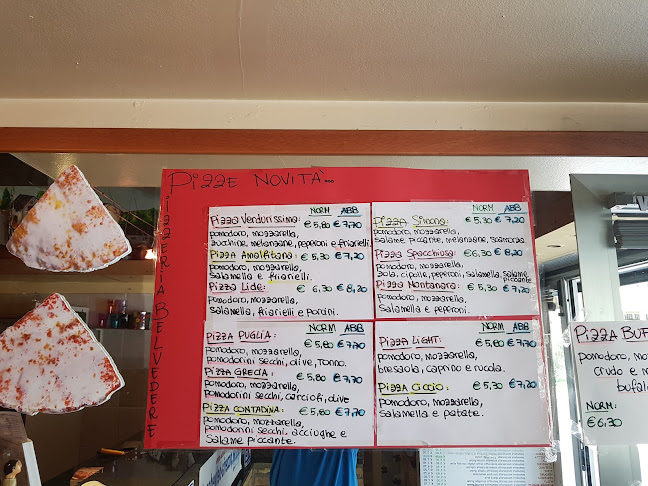 PIZZE NOVITÀ...
PIZZERIA BELVEDERE
NORM ABB
Pizza Verdurissima: € 5,80 € 7,70
pomodoro, mozzarella,
zucchine, melanzane, peperoni e friarielli.
Pizza Amalfitana: € 5,30 € 7,20
pomodoro, mozzarella,
salamella e friarielli.
Pizza Lide: € 6,30 € 8,20
pomodoro, mozzarella,
salamella, friarielli e porcini.
NORM ABB
PIZZA Simona: € 5,30 € 7,20
pomodoro, mozzarella,
salame piccante, melanzane, scamorza.
PIZZA Spacchiosa: € 6,30 € 8,20
pomodoro, mozzarella,
zola, cipolle, peperoni, salamella, salame piccante
Pizza Montanara: € 5,30 € 7,20
pomodoro, mozzarella,
Salamella e peperoni.
NORM ABB
PIZZA PUGLIA: € 5,80 € 7,70
pomodoro, mozzarella,
pomodorini secchi, olive, tonno.
PIZZA GRECIA: € 5,80 € 7,70
pomodoro, mozzarella,
pomodorini secchi, carciofi, olive
PIZZA CONTADINA: € 5,80 € 7,70
pomodoro, mozzarella,
pomodorini secchi, acciughe e
Salame piccante.
NORM ABB
PIZZA LIGHT: € 5,80 € 7,70
pomodoro, mozzarella,
bresaola, caprino e rucola.
PIZZA CICCIO: € 5,30 € 7,20
pomodoro, mozzarella,
Salamella e patate.
PIZZA BUF
pomodoro, mo
crudo e m
bufal
NORM:
€ 6,30